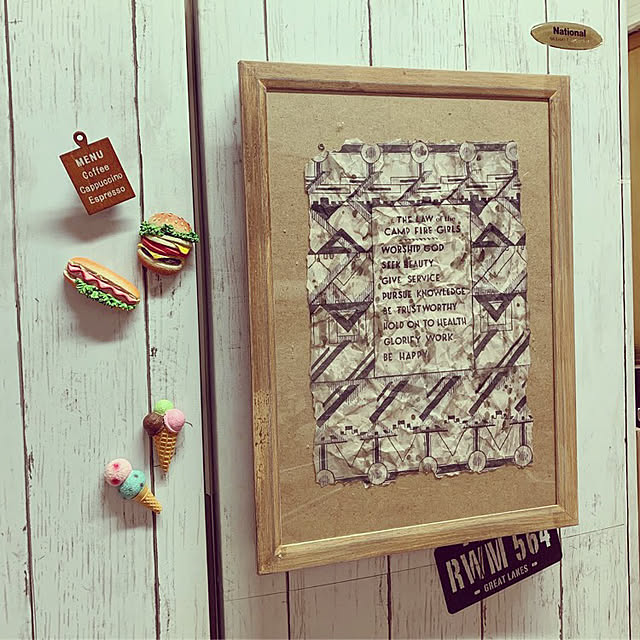 National
MENU
Coffee
Cappuccino
Espresso
THE LAW of the
CAMP FIRE GIRLS
WORSHIP GOD
SEEK BEAUTY
GIVE SERVICE
PURSUE KNOWLEDGE
BE TRUSTWORTHY
HOLD ON TO HEALTH
GLORIFY WORK
BE HAPPY
RWM 564
- GREAT LAKES -